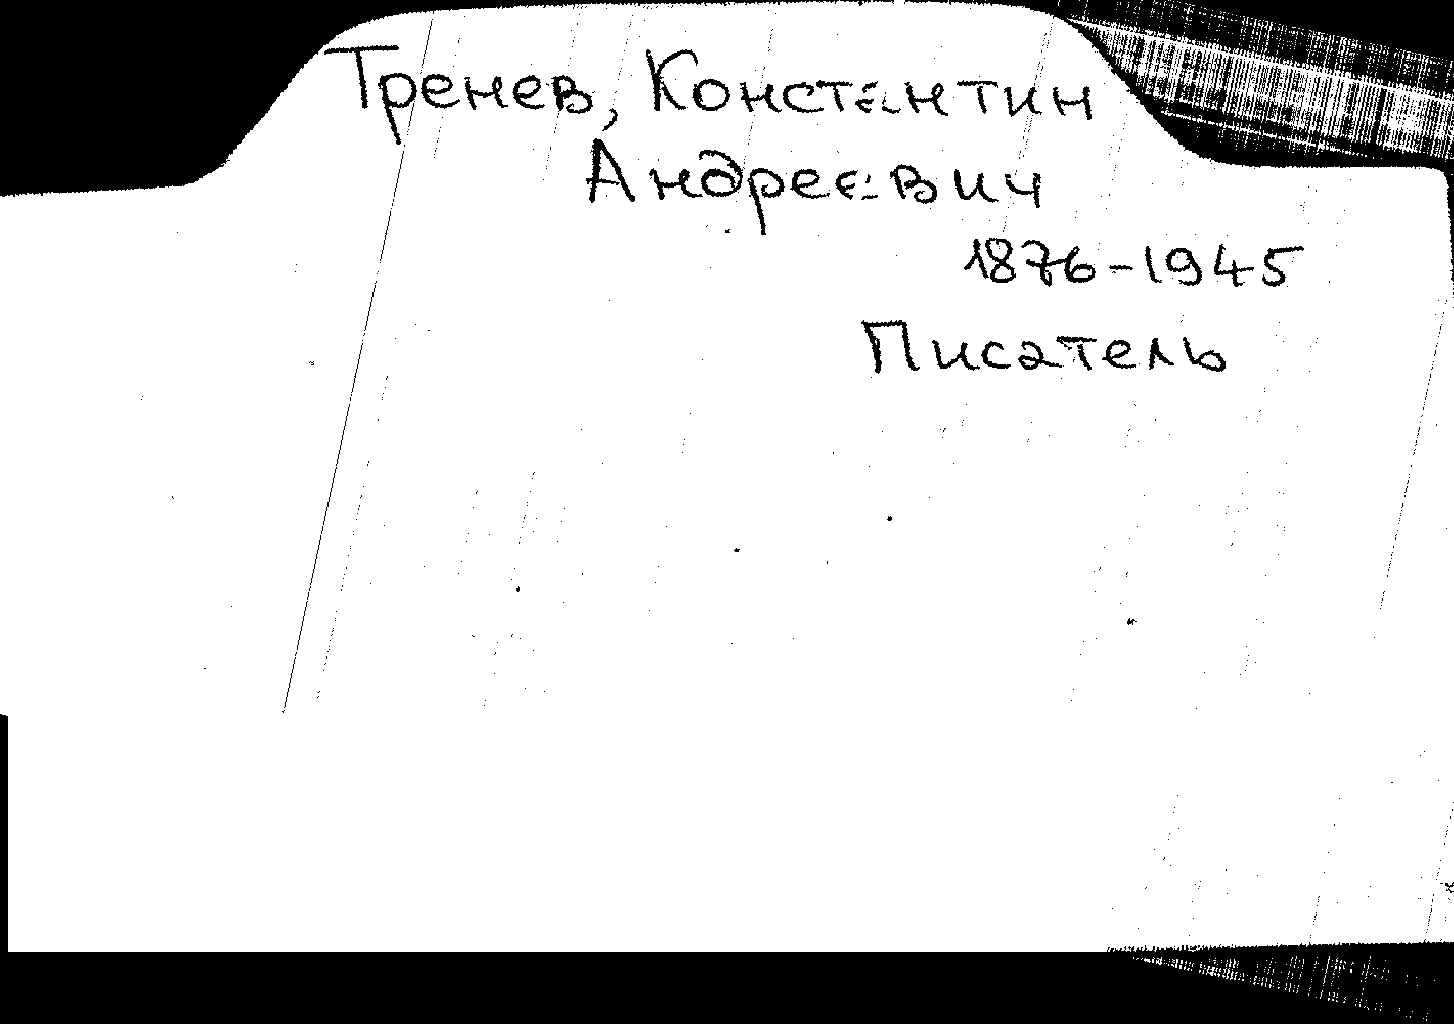 Тренев, Константин
Андреевич
1876-1945
Писатель